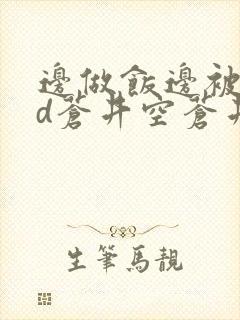 邊做飯邊被
d蒼井空蒼井
生筆馬靚